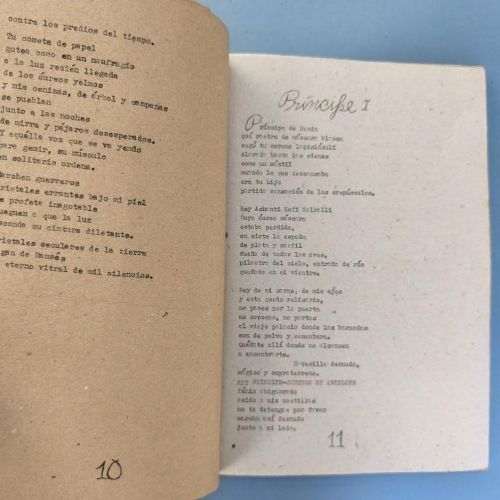 contra los predios del tiempo.
Tu cometa de papel
gotea como en un naufragio
a la luz recién llegada
de los áureos yelmos
y mis cenizas, de árbol y campanas
se pueblan
junto a las noches
de mirra y pájaros desesperados.
Y aquélla voz que se va yendo
para gemir, su músculo
en solitario ordena.
Marchan guerreros
cristales errantes bajo mi piel
profeta inagotable
jueguen a que la luz
esconde su cintura diletante.
cristales seculares de la tierra
de Ramsés
eterno vitral de mil silencios.
10
Príncipe I
Príncipe de Benin
qué rostro de máscara blanca
cegó tu corona lapislázuli
clavada hasta las sienes
como un mástil
cuando lo que descansaba
era tu hijo
perdida sensación de los crepúsculos.
Rey Ashanti Kofi
Cuya áurea máscara
estaba perdida,
en cirte la espada
de plata y marfil
dueño de todas las aves,
pilastra del cielo, entrada de río
quedado en el vientre.
Rey de mi carne, de mis ojos
y este quedo relicario,
no pases por la puerta
no corazona, no partas
el viejo palacio donde las barandas
son de polvo y cementerio.
Quédate allí donde no alcancen
a encontrarte.
desnuda,
mágico y supraterreno.
soy PRINCIPE-CUERNOS DE ANTILOPE
fénix abigarrado
caído a mis costillas
no te detengas por favor
marcha así desnudo
junto a mi lado.
11